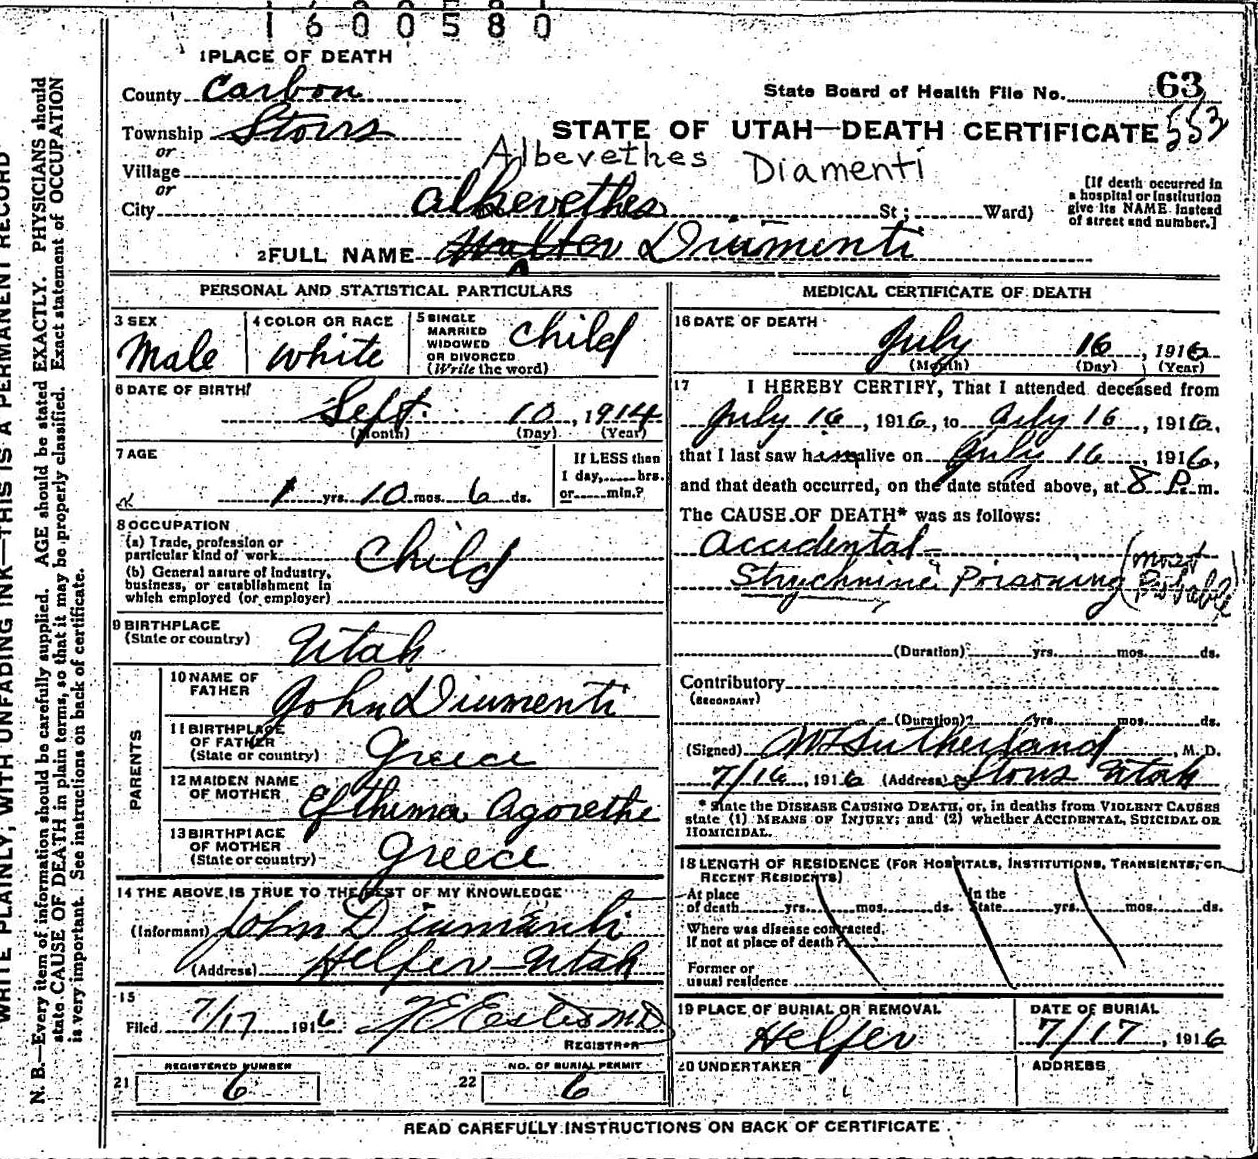 1600580
1 PLACE OF DEATH
County Carbon
State Board of Health File No. 63
Township Storrs
553
STATE OF UTAH—DEATH CERTIFICATE
or
Albevethes Diamenti
Village
or
[If death occurred in
a hospital or institution
give its NAME instead
of street and number.]
City St; Ward)
albevethes
2 FULL NAME Walter Diumenti
PERSONAL AND STATISTICAL PARTICULARS
3 SEX
Male
4 COLOR OR RACE
White
5 SINGLE
MARRIED
WIDOWED
OR DIVORCED
(Write the word)
Child
6 DATE OF BIRTH
Sept. 10, 1914
(Month) (Day) (Year)
7 AGE
1 yrs. 10 mos. 6 ds.
If LESS than
1 day, hrs.
or min.?
8 OCCUPATION
(a) Trade, profession or
particular kind of work
Child
(b) General nature of industry,
business, or establishment in
which employed (or employer)
9 BIRTHPLACE
(State or country)
Utah
PARENTS
10 NAME OF
FATHER
John Diumenti
11 BIRTHPLACE
OF FATHER
(State or country)
Greece
12 MAIDEN NAME
OF MOTHER
Efthima Agorethe
13 BIRTHPLACE
OF MOTHER
(State or country)
Greece
14 THE ABOVE IS TRUE TO THE BEST OF MY KNOWLEDGE
(Informant) John Diumenti
(Address) Helper Utah
15
Filed 7/17 1916
REGISTRAR
REGISTERED NUMBER
21 6
NO. OF BURIAL PERMIT
22 6
MEDICAL CERTIFICATE OF DEATH
16 DATE OF DEATH
July 16, 1916
(Month) (Day) (Year)
17 I HEREBY CERTIFY, That I attended deceased from
July 16, 1916, to July 16, 1916,
that I last saw him alive on July 16, 1916,
and that death occurred, on the date stated above, at 8 P. m.
The CAUSE OF DEATH* was as follows:
Accidental
Strychnine Poisoning (most
Probable)
(Duration) yrs. mos. ds.
Contributory
(SECONDARY)
(Duration) yrs. mos. ds.
(Signed) Sutherland, M. D.
7/16 1916 (Address) Storrs Utah
* State the DISEASE CAUSING DEATH, or, in deaths from VIOLENT CAUSES
state (1) MEANS OF INJURY; and (2) whether ACCIDENTAL, SUICIDAL OR
HOMICIDAL.
18 LENGTH OF RESIDENCE (FOR HOSPITALS, INSTITUTIONS, TRANSIENTS, OR
RECENT RESIDENTS)
At place
of death yrs. mos. ds.
In the
State yrs. mos. ds.
Where was disease contracted,
If not at place of death?
Former or
usual residence
19 PLACE OF BURIAL OR REMOVAL
Helper
DATE OF BURIAL
7/17, 1916
20 UNDERTAKER
ADDRESS
READ CAREFULLY INSTRUCTIONS ON BACK OF CERTIFICATE
WRITE PLAINLY, WITH UNFADING INK—THIS IS A PERMANENT RECORD
N. B.—Every item of information should be carefully supplied. AGE should be stated EXACTLY. PHYSICIANS should
state CAUSE OF DEATH in plain terms, so that it may be properly classified. Exact statement of OCCUPATION
is very important. See instructions on back of certificate.